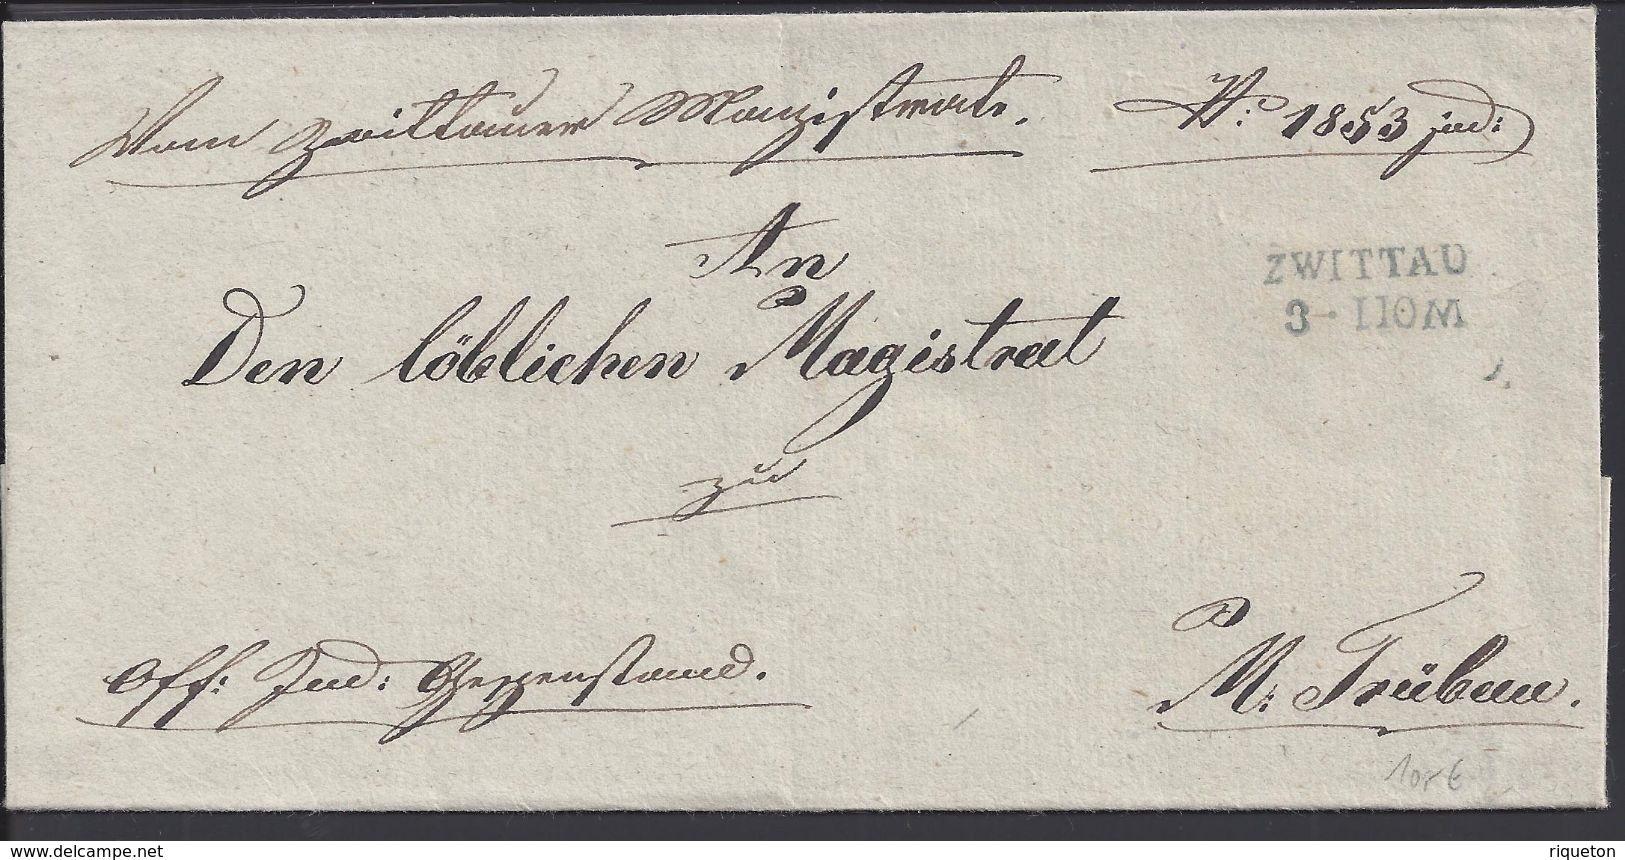 Vom Zwittauer Magistrate. N: 1853 jud:
An
ZWITTAU
3 · IIOM
Den löblichen Magistrat
zu
Off: Jud: Gegenstand.
M: Trübau.
delcampe.net
riqueton